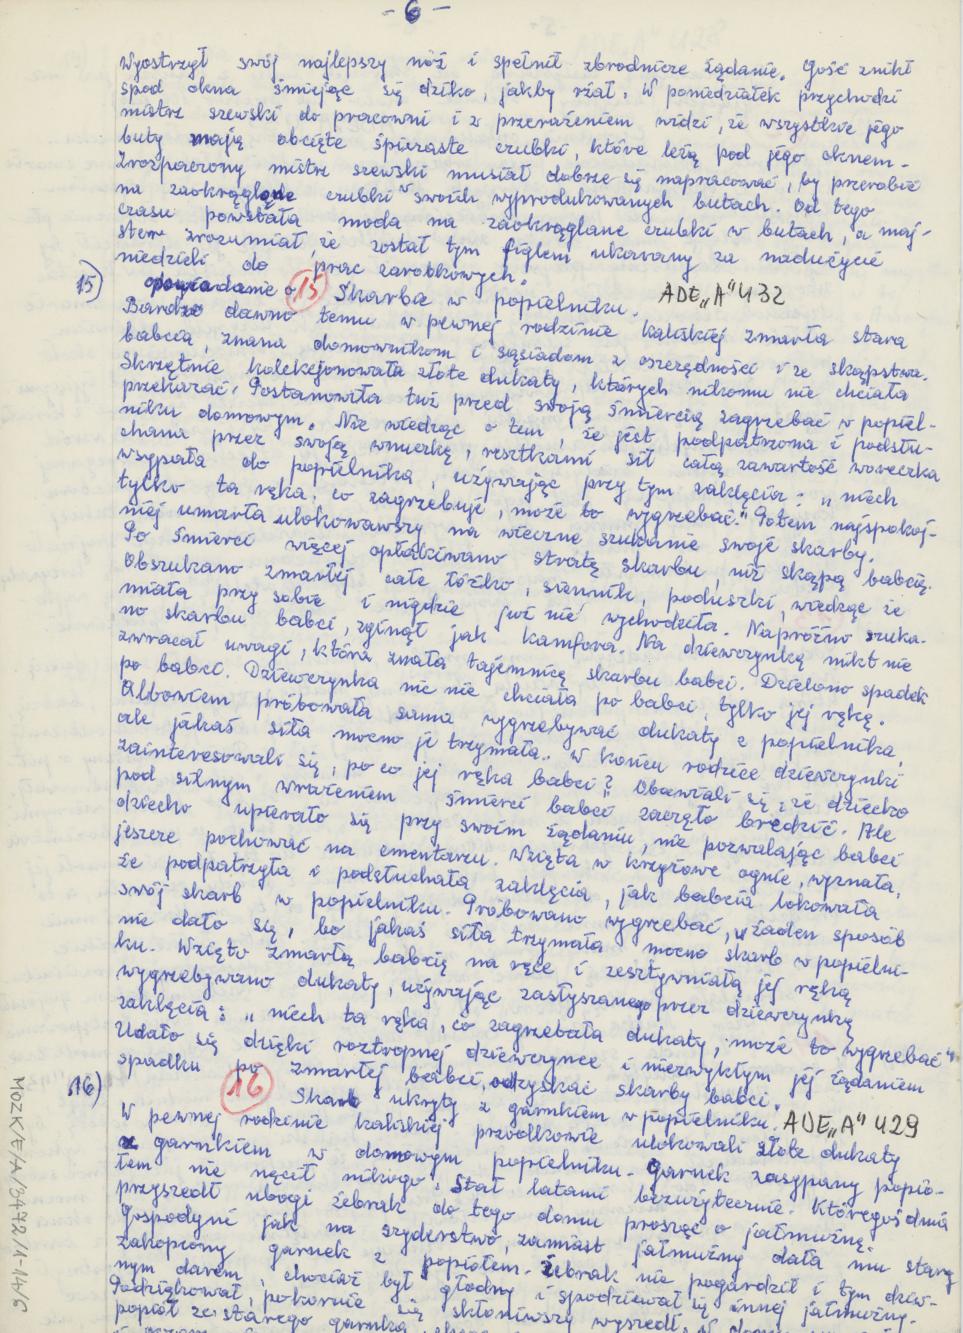 - 6 -
Wyostrzył swój najlepszy nóż i spełnił zbrodnicze żądanie. Gość znikł
spod okna śmiejąc się dziko, jakby rżał. W poniedziałek przychodzi
mistrz szewski do pracowni i z przerażeniem widzi, że wszystkie jego
buty mają obcięte śpiczaste czubki, które leżą pod jego oknem.
Zrozpaczony mistrz szewski musiał dobrze się napracować, by przerobić
na zaokrąglone czubki w swoich wyprodukowanych butach. Od tego
czasu powstała moda na zaokrąglane czubki w butach, a maj-
ster zrozumiał, że został tym figlem ukarany za nadużycie
niedzieli do prac zarobkowych.
15) opowiadanie o 15 Skarbie w popielniku. ADE „A” 432
Bardzo dawno temu w pewnej rodzinie kaliskiej zmarła stara
babcia, znana domownikom i sąsiadom z oszczędności i ze skąpstwa.
Skrzętnie kolekcjonowała złote dukaty, których nikomu nie chciała
przekazać. Postanowiła tuż przed swoją śmiercią zagrzebać w popiel-
niku domowym. Nie wiedząc o tem, że jest podpatrzona i podsłu-
chana przez swoją wnuczkę, resztkami sił całą zawartość woreczka
wsypała do popielnika, używając przy tym zaklęcia - „niech
tylko ta ręka, co zagrzebuje, może to wygrzebać.” Potem najspokoj-
niej umarła ulokowawszy na wieczne szukanie swoje skarby.
Po śmierci więcej opłakiwano stratę skarbu, niż skąpą babcię.
Obszukano zmarłej całe łóżko, siennik, poduszki, wiedząc że
miała przy sobie i nigdzie już nie wychodziła. Napróżno szuka-
no skarbu babci, zginął jak kamfora. Na dziewczynkę nikt nie
zwracał uwagi, która znała tajemnicę skarbu babci. Dzielono spadek
po babci. Dziewczynka nic nie chciała po babci, tylko jej rękę.
Albowiem próbowała sama wygrzebywać dukaty z popielnika,
ale jakaś siła mocno je trzymała. W końcu rodzice dziewczynki
zainteresowali się, po co jej ręka babci? Obawiali się, że dziecko
pod silnym wrażeniem śmierci babci zaczęło bredzić. Ale
dziecko upierało się przy swoim żądaniu, nie pozwalając babci
jeszcze pochować na cmentarzu. Wzięta w krzyżowe ognie, wyznała,
że podpatrzyła i podsłuchała zaklęcia, jak babcia lokowała
swój skarb w popielniku. Próbowano wygrzebać, w żaden sposób
nie dało się, bo jakaś siła trzymała mocno skarb w popielni-
ku. Wzięto zmarłą babcię na ręce i zesztywniałą jej ręką
wygrzebywano dukaty, używając zasłyszanego przez dziewczynkę
zaklęcia: „niech ta ręka, co zagrzebała dukaty, może to wygrzebać”.
Udało się dzięki roztropnej dziewczynce i niezwykłym jej żądaniem
spadku po zmarłej babci, odzyskać skarby babci.
16) 16 Skarb ukryty z garnkiem w popielniku. ADE „A” 429
W pewnej rodzinie kaliskiej przodkowie ulokowali złote dukaty
z garnkiem w domowym popielniku. Garnek zasypany popio-
łem nie nęcił nikogo. Stał latami bezużytecznie. Któregoś dnia
przyszedł ubogi żebrak do tego domu prosząc o jałmużnę.
Gospodyni jak na szyderstwo, zamiast jałmużny dała mu stary
zakopiony garnek z popiołem. Żebrak nie pogardził i tym dziw-
nym darem, chociaż był głodny i spodziewał się innej jałmużny.
Podziękował, pokornie się skłoniwszy wyszedł.
popiół ze starego garnka,
MOZK/E/A/3472/1-14/6